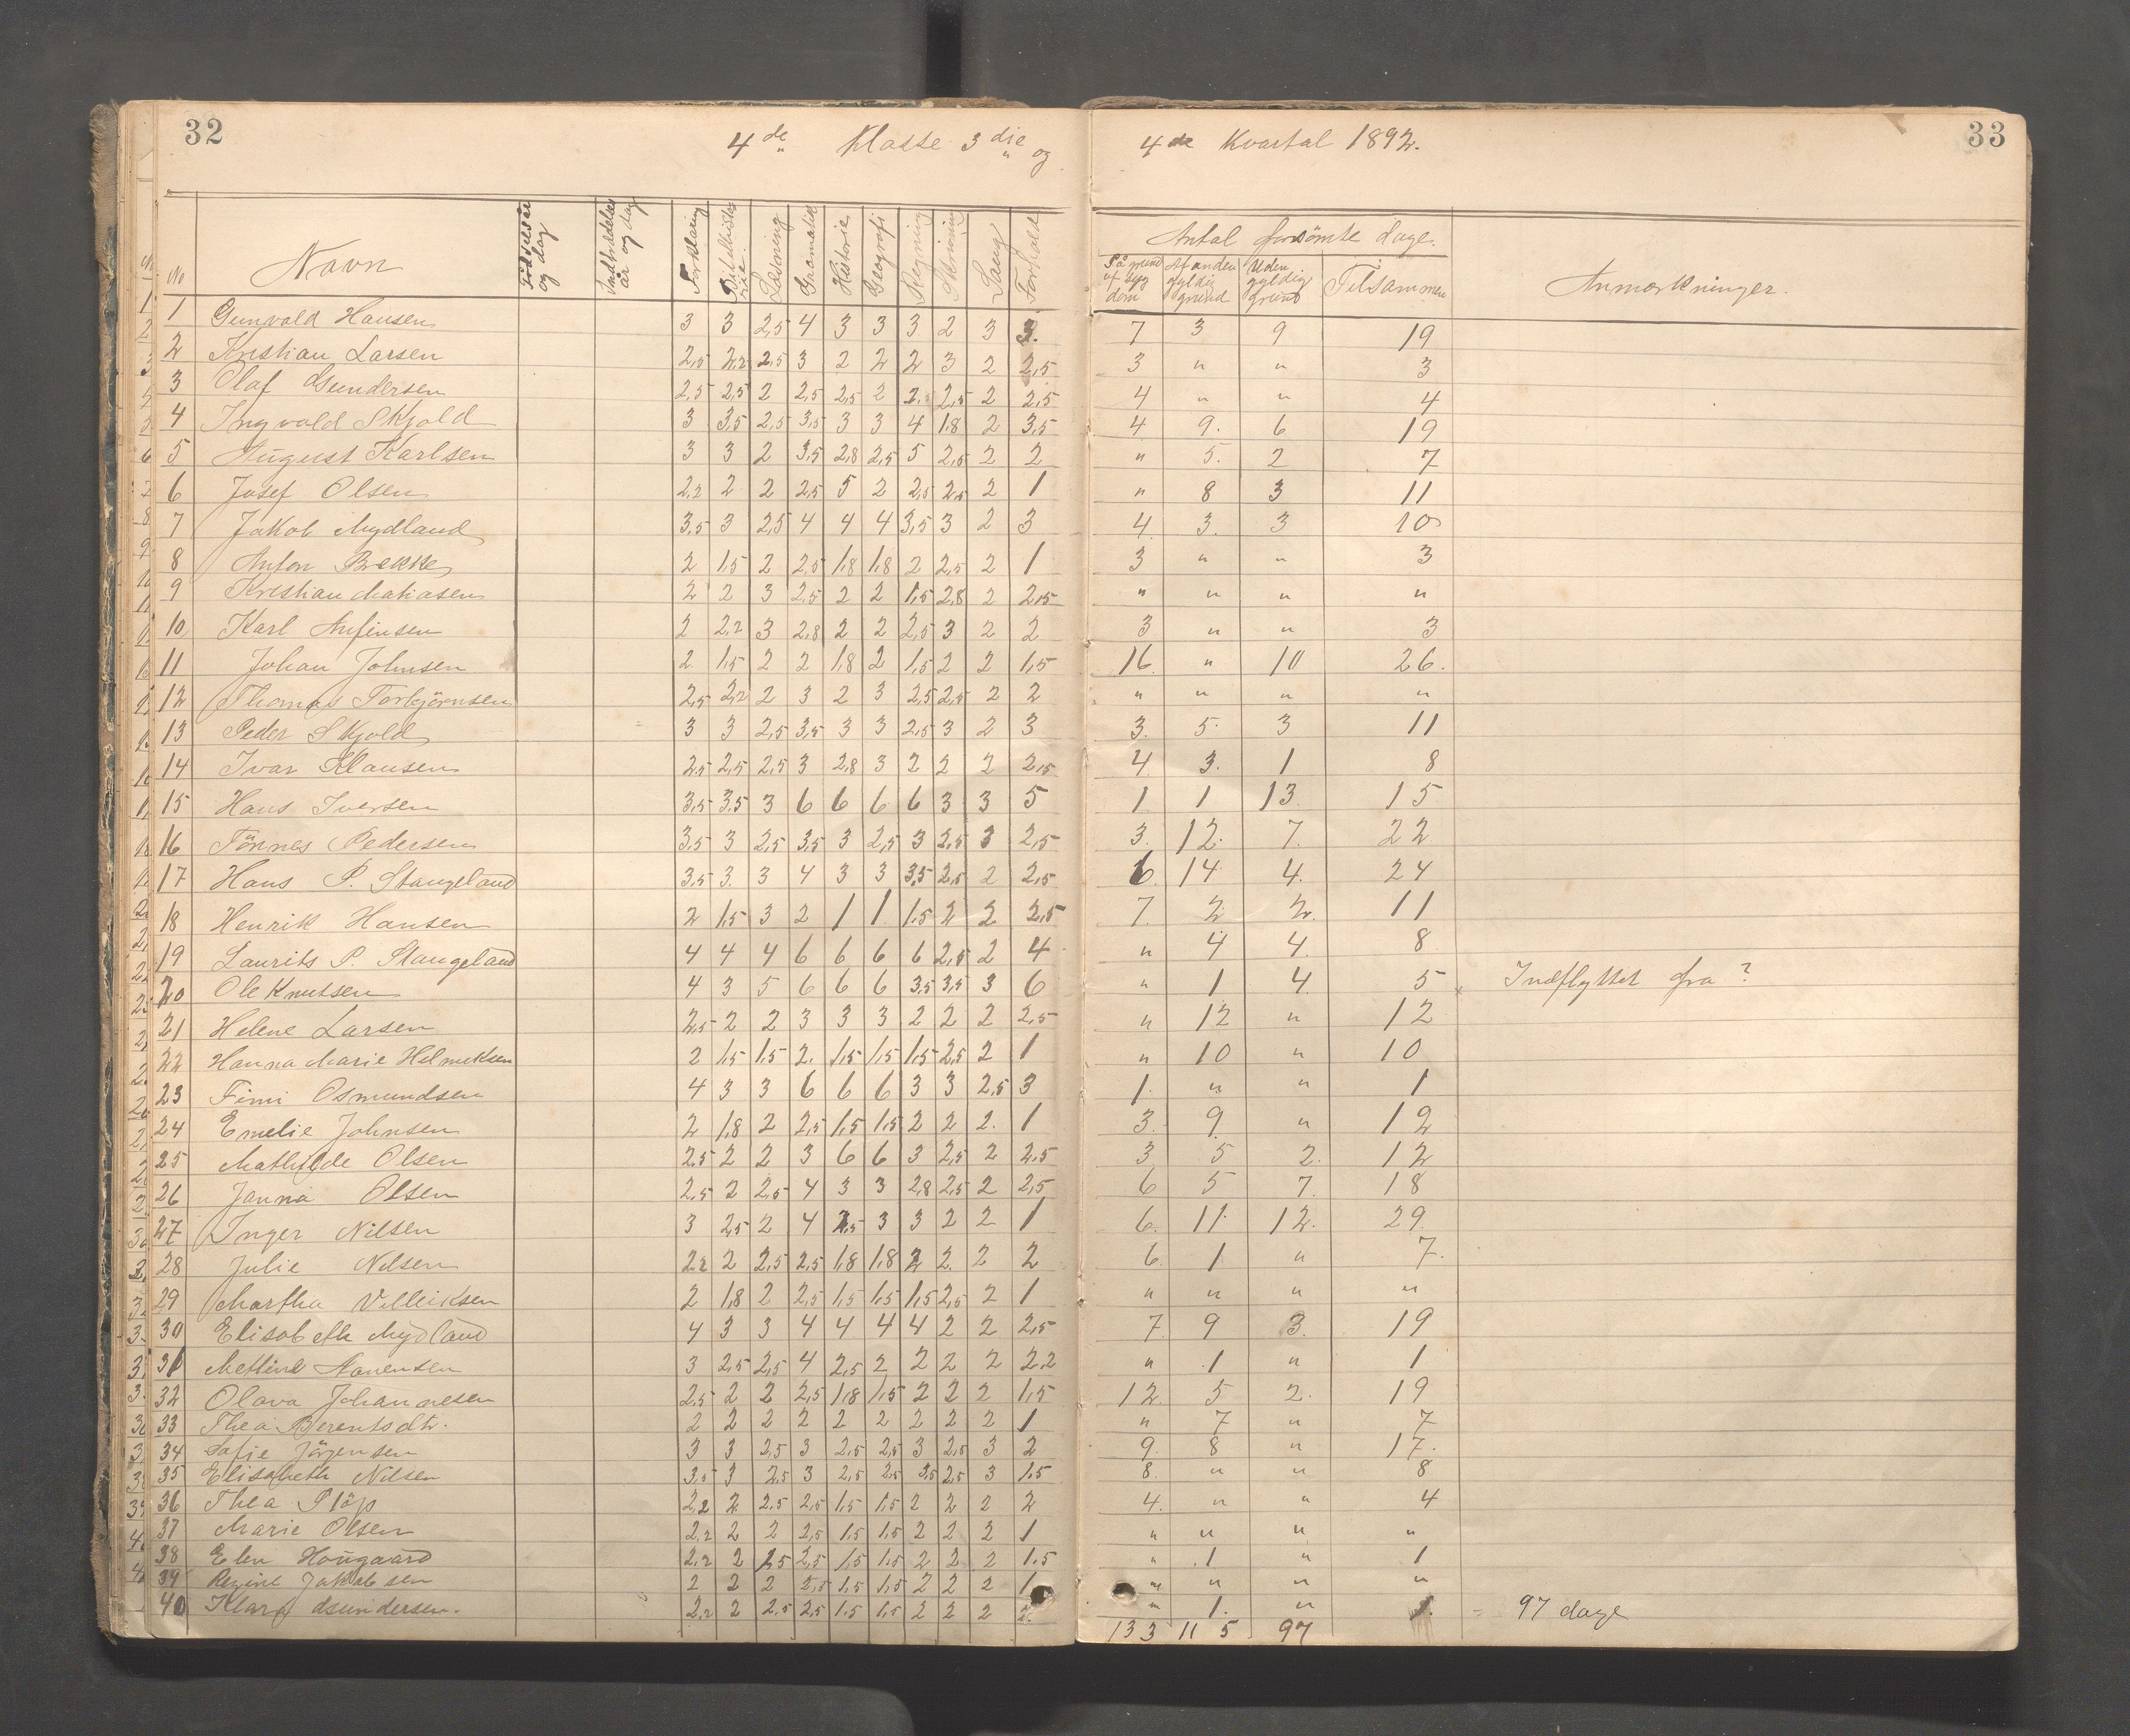 32
4de Klasse 3die og
4de Kvartal 1892.
33
No Navn Fødselsår og dag Indtrædelses år og dag Forklaring Bibelhistorie Læsning Gramatik Historie Geografi Regning Skrivning Sang Forhold
Antal forsömte dage.
På grund af syg dom Af anden gyldig grund Uden gyldig grund Tilsammen Anmærkninger.
1 Gunvald Hansen 3 3 2,5 4 3 3 3 2 3 3. 7 3 9 19
2 Kristian Larsen 2,5 2,2 2,5 3 2 2 2 3 2 2,5 3 " " 3
3 Olaf Gundersen 2,5 2,5 2 2,5 2,5 2 2,5 2,5 2 2,5 4 " " 4
4 Ingvald Skjold 3 3,5 2,5 3,5 3 3 4 1,8 2 3,5 4 9. 6 19
5 August Karlsen 3 3 2 3,5 2,8 2,5 5 2,5 2 2 " 5. 2 7
6 Josef Olsen 2,2 2 2 2,5 5 2 2,5 2,5 2 1 " 8 3 11
7 Jakob Mydland 3,5 3 2,5 4 4 4 3,5 3 2 3 4. 3. 3 10
8 Anton Bekke 2 1,5 2 2,5 1,8 1,8 2 2,5 2 1 3 " " 3
9 Kristian Matiasen 2 2 3 2,5 2 2 1,5 2,8 2 2,5 " " " "
10 Karl Anfinsen 2 2,2 3 2,8 2 2 2,5 3 2 2 3 " " 3
11 Johan Johnsen 2 1,5 2 2 1,8 2 1,5 2 2 1,5 16. " 10 26.
12 Thomas Torbjörnsen 2,5 2,2 2 3 2 3 2,5 2,5 2 2 " " " "
13 Peder Skjold 3 3 2,5 3,5 3 3 2,5 3 2 3 3. 5. 3 11
14 Ivar Klausen 2,5 2,5 2,5 3 2,8 3 2 2 2 2,5 4. 3. 1 8
15 Hans Iversen 3,5 3,5 3 6 6 6 6 3 3 5 1 1 13. 15
16 Tönnes Pedersen 3,5 3 2,5 3,5 3 2,5 3 2,5 3 2,5 3. 12. 7. 22
17 Hans P. Stangeland 3,5 3. 3 4 3 3 3,5 2,5 2 2,5 6. 14 4. 24
18 Henrik Hansen 2 1,5 3 2 1 1 1,5 2 2 2,5 7. 2 2. 11
19 Laurits P. Stangeland 4 4 4 6 6 6 6 2,5 2 4 " 4 4. 8
20 Ole Knutsen 4 3 5 6 6 6 3,5 3,5 3 6 " 1 4. 5 x Indflyttet fra ?
21 Helene Larsen 2,5 2 2 3 3 3 2 2 2 2,5 " 12 " 12
22 Hanna Marie Helmeksen 2 1,5 1,5 2. 1,5 1,5 1,5 2,5 2 1 " 10 " 10
23 Fini Osmundsen 4 3 3 6 6 6 3 3 2,5 3 1. " " 1
24 Emelie Johnsen 2 1,8 2 2,5 1,5 1,5 2 2 2. 1 3. 9. " 12
25 Mathilde Olsen 2,5 2 2 3 6 6 3 2,5 2 2,5 3 5 2. 12
26 Janna Olsen 2,5 2 2,5 4 3 3 2,8 2,5 2 2,5 6 5 7. 18
27 Inger Nilsen 3 2,5 2 4 2,5 3 3 2 2 1 6. 11. 12. 29.
28 Julie Nilsen 2,2 2 2,5 2,5 1,8 1,8 2 2 2 2 6. 1. " 7.
29 Martha Velleiksen 2 1,8 2 2,5 1,5 1,5 1,5 2,5 2 1 " " " "
30 Elisabeth Mydland 4 3 3 4 4 4 4 2 2 2,5 7. 9 3. 19
31 Mettine Aanensen 3 2,5 2,5 4 2,5 2 2 2 2 2,2 " 1 " 1
32 Olava Johannesen 2,5 2 2 2,5 1,8 1,5 2 2 2 1,5 12. 5 2. 19
33 Thea Berentsdtr. 2 2 2 2 2 2 2 2 2 1 " 7 " 7
34 Sofie Jörgensen 3 3 2,5 3 2,5 2,5 3 2,5 3 2 9. 8 " 17.
35 Elisabeth Nilsen 3,5 3 2,5 3 2,5 2,5 3,5 2,5 3 1,5 8. " " 8
36 Thea Plöp 2,2 2 2,5 2,5 1,5 1,5 2 2 2 2 4. " " 4
37 Marie Olsen 2,2 2 2 2,5 1,5 1,5 2 2 2 1 " " " "
38 Elen Hougaard 2,2 2 1,5 2,5 1,5 1,5 2 2 2 1,5 " 1 " 1
39 Regine Jakobsen 2 2 2 2,5 1,5 1,5 2 2 2 1 " " " "
40 Klara Gundersen. 2,2 2 2,5 2,5 1,5 1,5 2 2 2 2. " 1. " 1.
133 115 97 = 97 dage